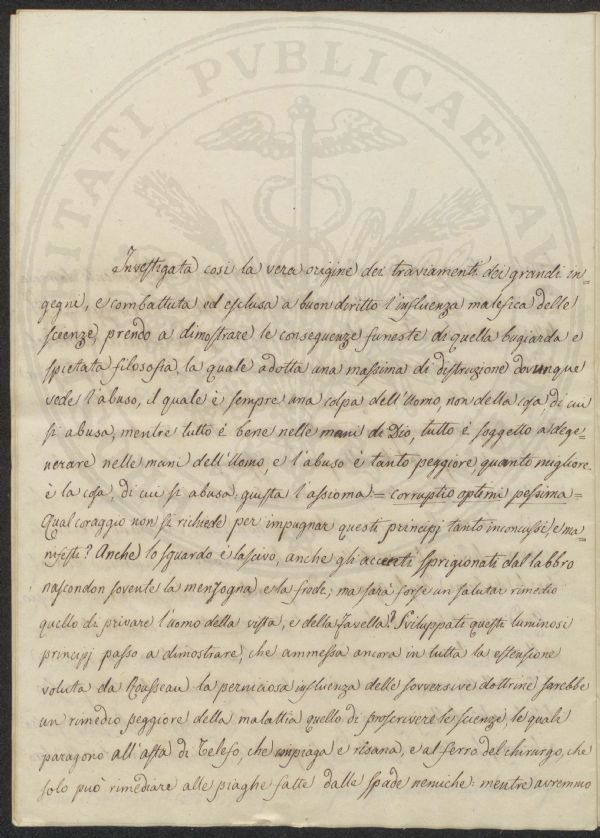 Investigata così la vera origine dei traviamenti dei grandi in=
gegni, e combattuta ed esclusa a buon diritto l'influenza malefica delle
scienze, prendo a dimostrare le conseguenze funeste di quella bugiarda e
spietata filosofia, la quale adotta una massima di distruzione dovunque
vede l'abuso, il quale è sempre una colpa dell'Uomo, non della cosa di cui
si abusa, mentre tutto è bene nelle mani di Dio, tutto è soggetto a dege=
nerare nelle mani dell'Uomo, e l'abuso è tanto peggiore, quanto migliore
è la cosa, di cui si abusa, giusta l'assioma = corruptio optimi pessima =
Qual coraggio non si richiede per impugnar questi principj tanto inconcussi, e ma=
nifesti? Anche lo sguardo è lascivo, anche gli accenti sprigionati dal labbro
nascondon sovente la menzogna e la frode; ma sarà forse un salutar rimedio
quello di privare l'uomo della vista, e della favella? Sviluppati questi luminosi
principj passo a dimostrare, che ammessa ancora in tutta la estensione
voluta da Rousseau la perniciosa influenza delle sovversive dottrine sarebbe
un rimedio peggiore della malattia quello di proscrivere le scienze, le quali
paragono all'asta di Telefo, che impiaga e risana, e al ferro del chirurgo, che
solo può rimediare alle piaghe fatte dalle spade nemiche: mentre avremmo
ITATI PVBLICAE